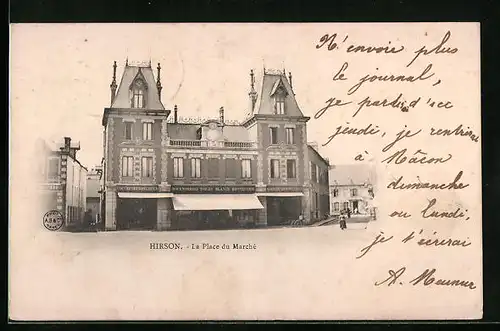 N'envoie plus
le journal,
je pars d'ici
jeudi, je rentrerai
à Mâcon
dimanche
ou lundi,
je t'écrirai
A. Meunier
HIRSON. - La Place du Marché